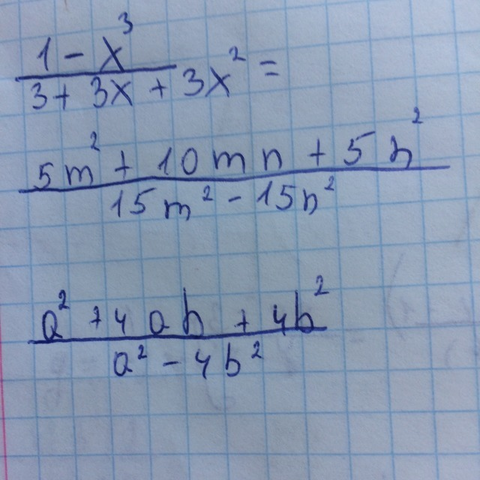 1 - x³
3 + 3x + 3x² =
5m² + 10mn + 5n²
15m² - 15n²
a² + 4ab + 4b²
a² - 4b²